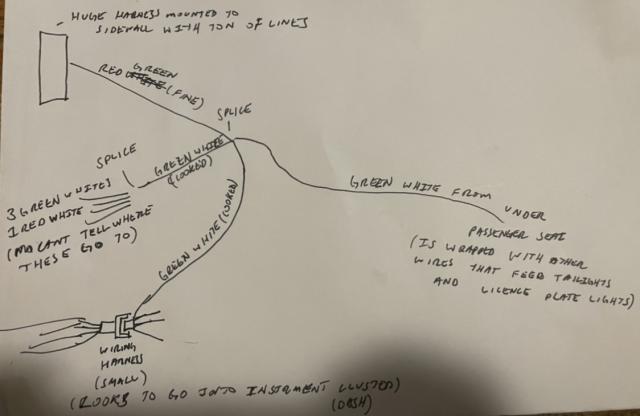 HUGE HARNESS MOUNTED TO
SIDEWALL WITH TON OF LINES
RED GREEN
(FINE)
SPLICE
SPLICE
GREEN WHITE
(COOKED)
3 GREEN WHITES
1 RED WHITE
(MA CANT TELL WHERE
THESE GO TO)
GREEN WHITE (COOKED)
GREEN WHITE FROM UNDER
PASSENGER SEAT
(IS WRAPPED WITH OTHER
WIRES THAT FEED TAILIGHTS
AND LICENCE PLATE LIGHTS)
WIRING
HARNESS
(SMALL)
(LOOKS TO GO INTO INSTRUMENT CLUSTER)
(DASH)